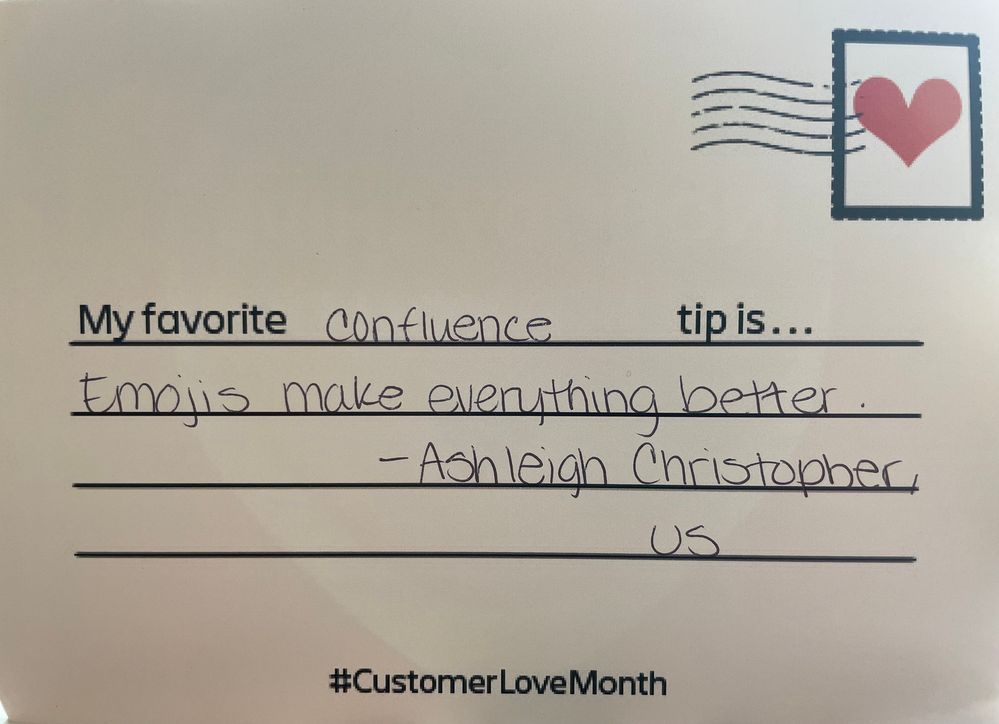 My favorite confluence tip is...
Emojis make everything better.
- Ashleigh Christopher,
US
#CustomerLoveMonth